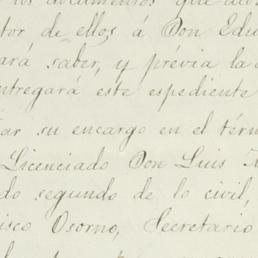 los documentos que
tor de ellos á Don Edu
ará saber, y prévia la
ntregará este espediente
ar su encargo en el térm
Licenciado Don Luis
do segundo de lo civil,
isco Osorno, Secretario